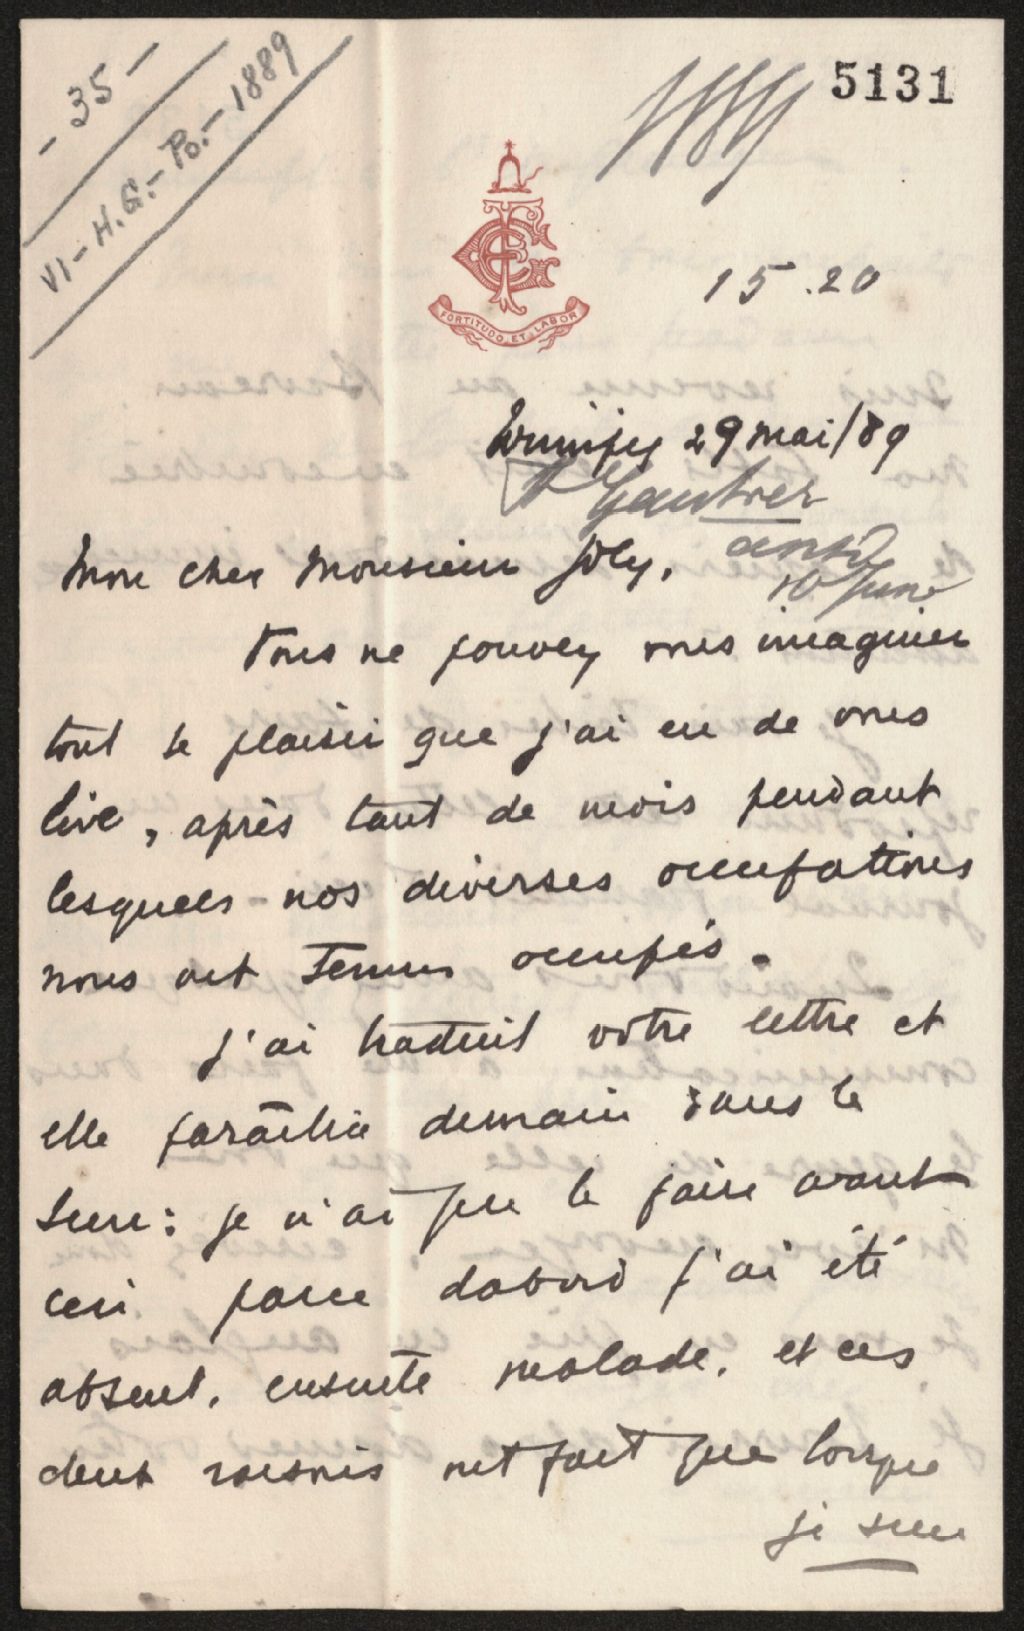 - 35 -
VI - H.G. - Po. - 1889
5131
FORTITUDO ET LABOR
15.20
Winnipeg 29 mai/89
Gautier
10 June
Mon cher Monsieur Joly,
Vous ne pouvez vous imaginer
tout le plaisir que j'ai eu de vous
lire, après tant de mois pendant
lesquels nos diverses occupations
nous ont tenus occupés.
J'ai traduit votre lettre et
elle paraîtra demain dans le
Sun : je n'ai pu le faire avant
ceci parce dabord j'ai été
absent, ensuite malade, et ces
deux raisons ont fait que lorsque
je suis